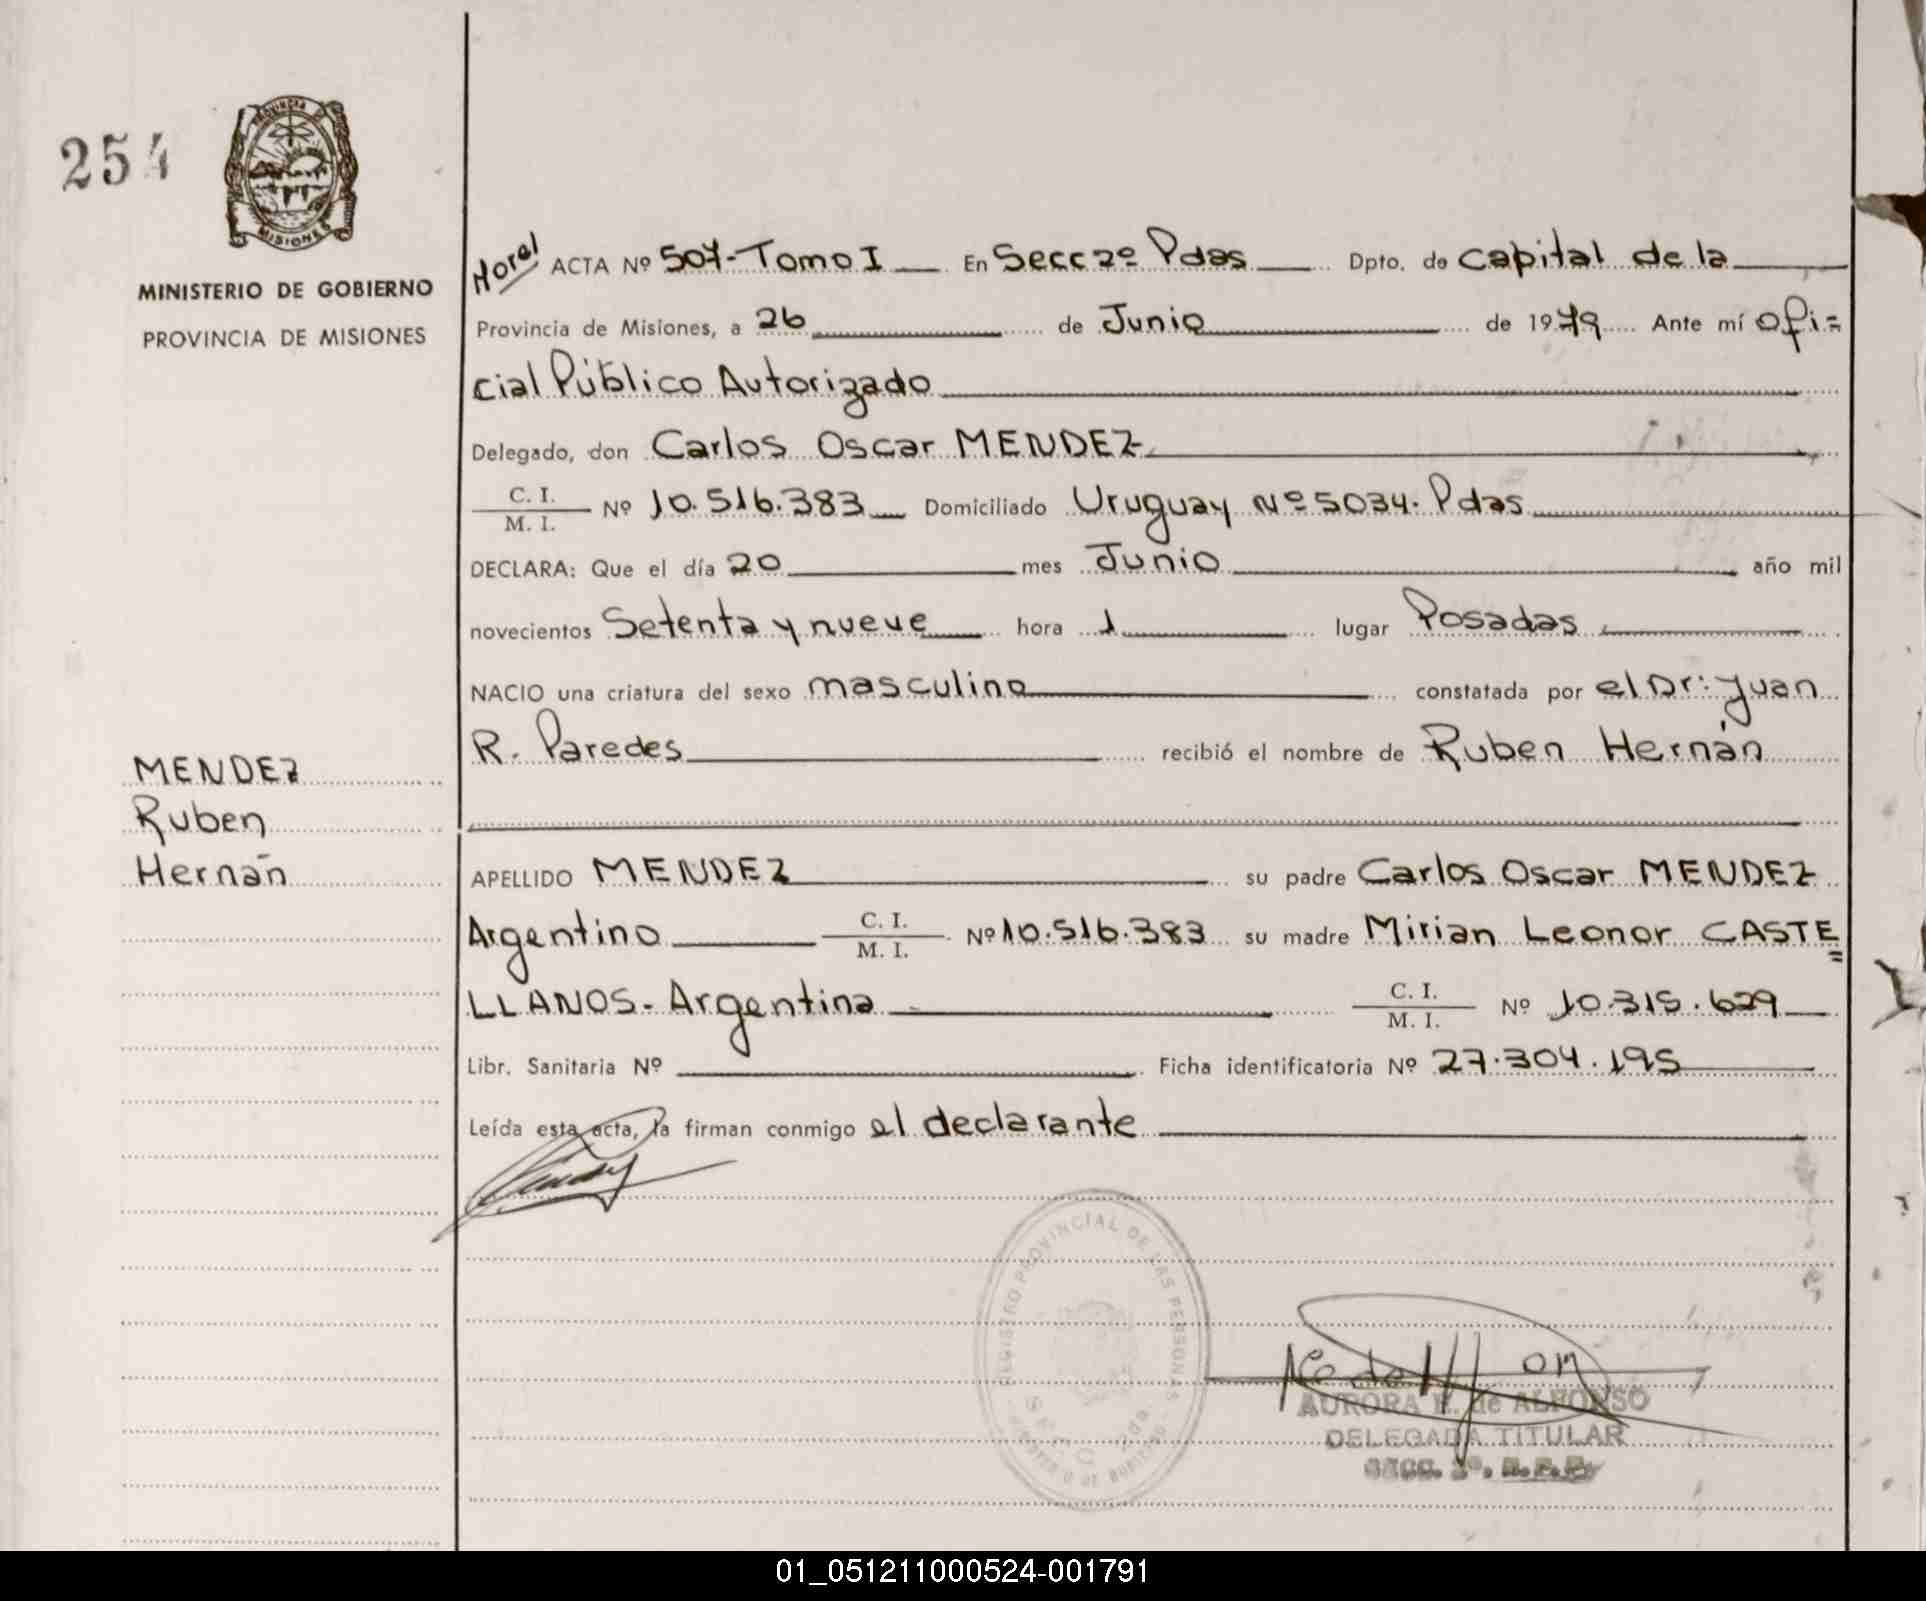 254
PROVINCIA DE
MISIONES
MINISTERIO DE GOBIERNO
PROVINCIA DE MISIONES
MENDEZ
Ruben
Hernán
ACTA Nº 507-Tomo I En Secc 2º Pdas Dpto. de Capital de la
Provincia de Misiones, a 26 de Junio de 1979 Ante mí Ofi=
cial Público Autorizado
Delegado, don Carlos Oscar MENDEZ
C. I.
M. I. Nº 10.516.383 Domiciliado Uruguay Nº 5034. Pdas
DECLARA: Que el día 20 mes Junio año mil
novecientos Setenta y nueve hora 1 lugar Posadas
NACIO una criatura del sexo masculino constatada por el Dr: Juan
R. Paredes recibió el nombre de Ruben Hernán
APELLIDO MENDEZ su padre Carlos Oscar MENDEZ
Argentino C. I.
M. I. Nº 10.516.383 su madre Mirian Leonor CASTE=
LLANOS - Argentina C. I.
M. I. Nº 10.315.629
Libr. Sanitaria Nº Ficha identificatoria Nº 27.304.195
Leída esta acta, la firman conmigo el declarante
REGISTRO PROVINCIAL DE LAS PERSONAS
SECC 2da.
AURORA de ALFONSO
DELEGADA TITULAR
SECC. 2º.
01_051211000524-001791